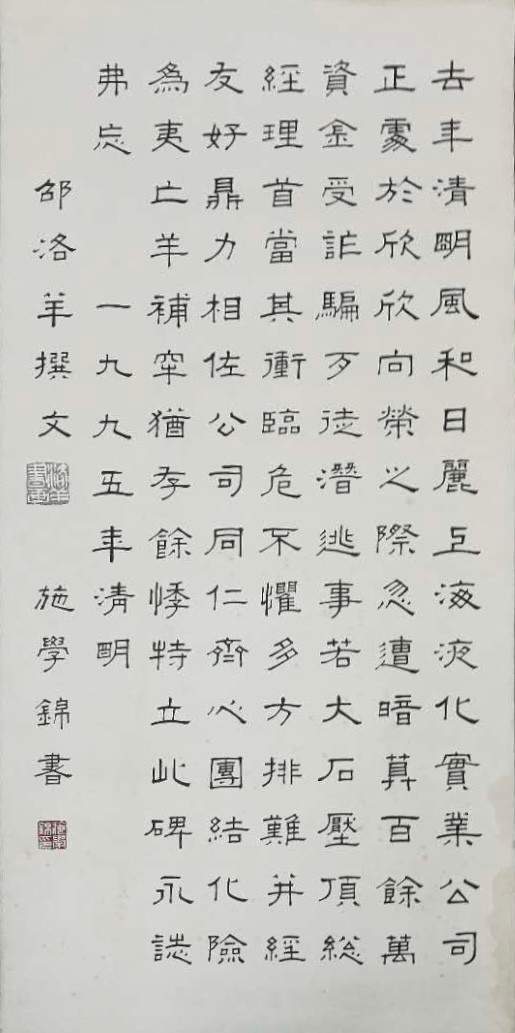 去年清明風和日麗上海液化實業公司
正處於欣欣向榮之際忽遭暗算百餘萬
資金受詐騙歹徒潛逃事若大石壓頂總
經理首當其衝臨危不懼多方排難并經
友好鼎力相佐公司同仁齊心團結化險
為夷亡羊補牢猶存餘悸特立此碑永誌
弗忘 一九九五年清明
邵洛羊撰文 施學錦書